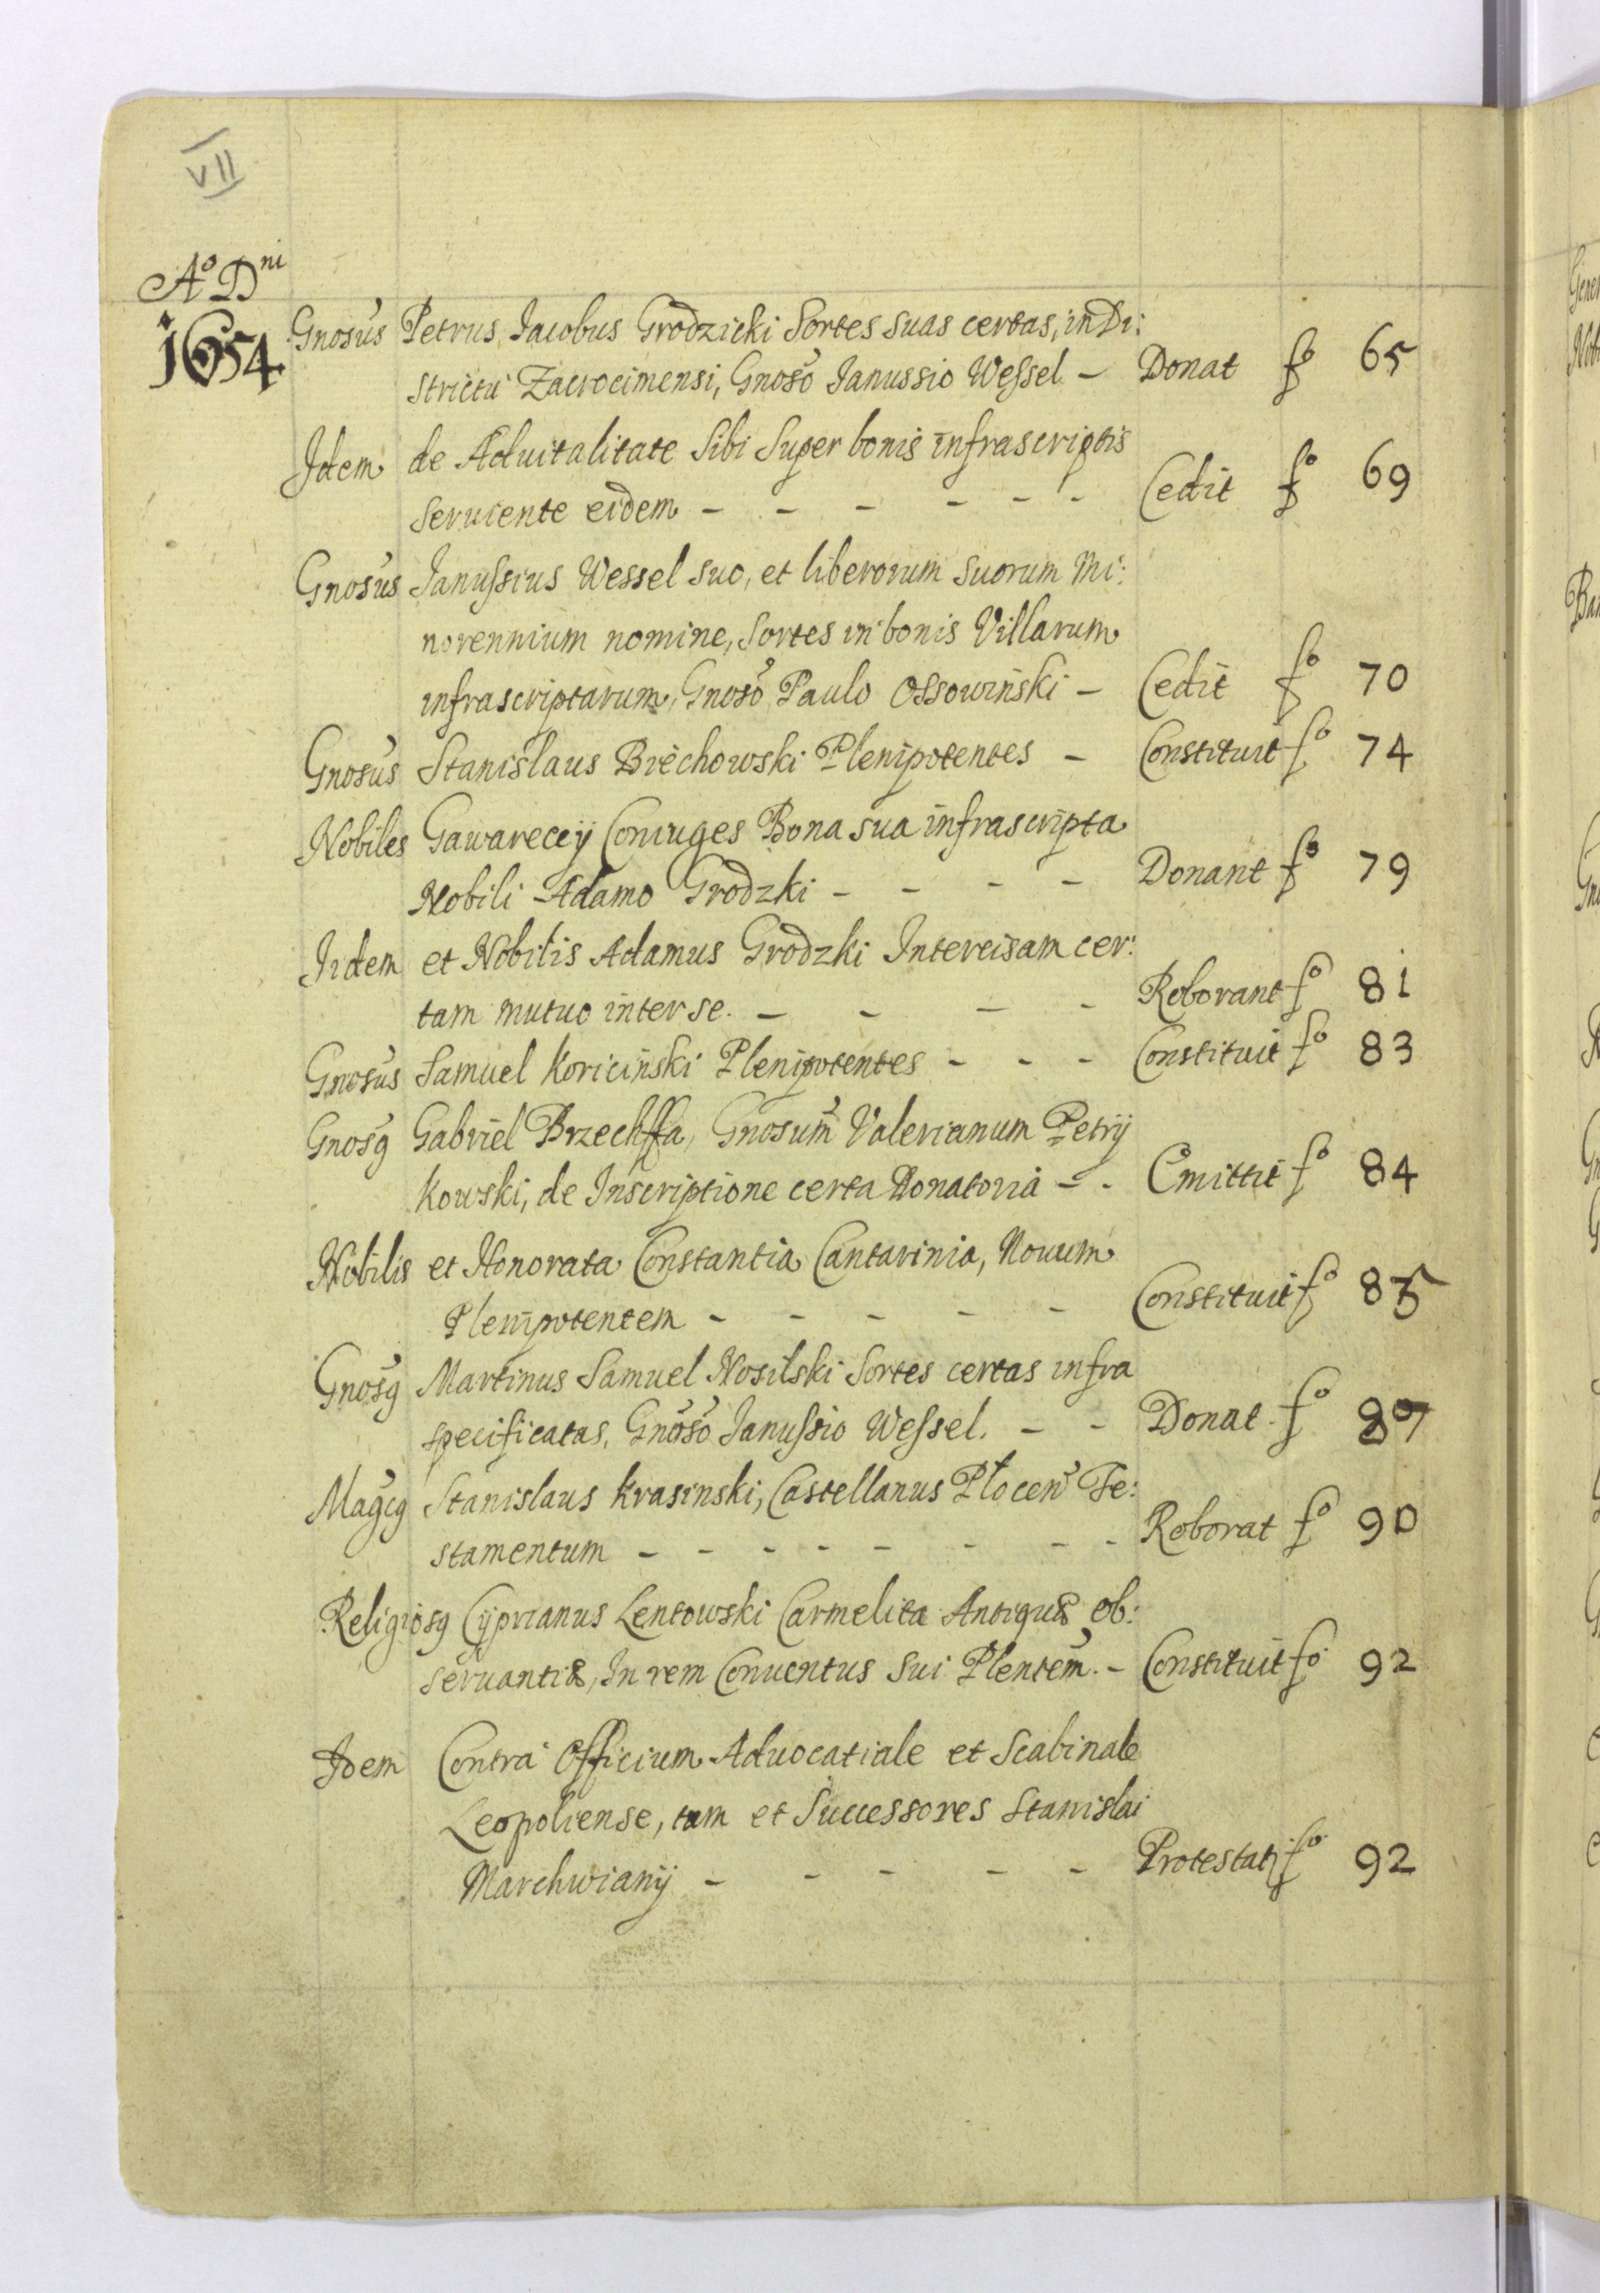 VII
Aº Dni
1654
Gnosus Petrus Iacobus Grodzicki Sortes suas certas, in Di:
strictu Zacrocimensi, Gnoso Ianussio Wessel – Donat fº 65
Idem de Aduitalitate Sibi Super bonis infrascriptis
seruiente eidem – – – – – – Cedit fº 69
Gnosus Ianussius Wessel suo, et liberorum suorum Mi:
norennium nomine, Sortes in bonis Villarum
infrascriptarum, Gnoso Paulo Ossowinski – Cedit fº 70
Gnosus Stanislaus Biechowski Plenipotentes – Constituit fº 74
Nobiles Gawareccij Coniuges Bona sua infrascripta
Nobili Adamo Grodzki – – – – Donant fº 79
Iidem et Nobilis Adamus Grodzki Intercisam cer:
tam mutuo inter se. – – – – Roborant fº 81
Gnosus Samuel Koricinski Plenipotentes – – – Constituit fº 83
Gnosq Gabriel Brzechffa, Gnosum Valerianum Petrij
kowski, de Inscriptione certa Donatoria – – Emittit fº 84
Nobilis et Honorata Constantia Cantarinia, Nouum
Plenipotentem – – – – – Constituit fº 85
Gnosq Martinus Samuel Nosilski Sortes certas infra
specificatas, Gnoso Ianussio Wessel. – – Donat fº 87
Magcq Stanislaus Krasinski, Castellanus Płocen Te:
stamentum – – – – – – – – Roborat fº 90
Religiosq Cyprianus Lentowski Carmelita Antiquæ ob:
seruantiæ, In rem Conuentus sui Plentem. – Constituit fº 92
Idem Contra Officium Aduocatiale et Scabinale
Leopoliense, tam et Successores Stanislai
Marchwianij – – – – – Protestatr fº 92